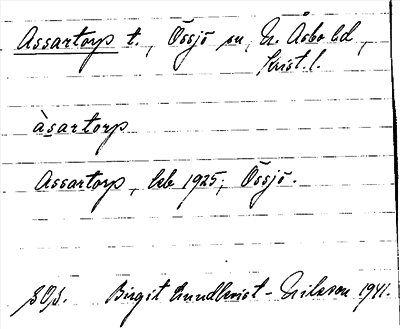 Assartorp t., Össjö sn, N. Åsbo hd,
Krist. l.
àsartorp
Assartorp, leb 1925; Össjö.
Birgit Lundkvist-Nilsson 1941.